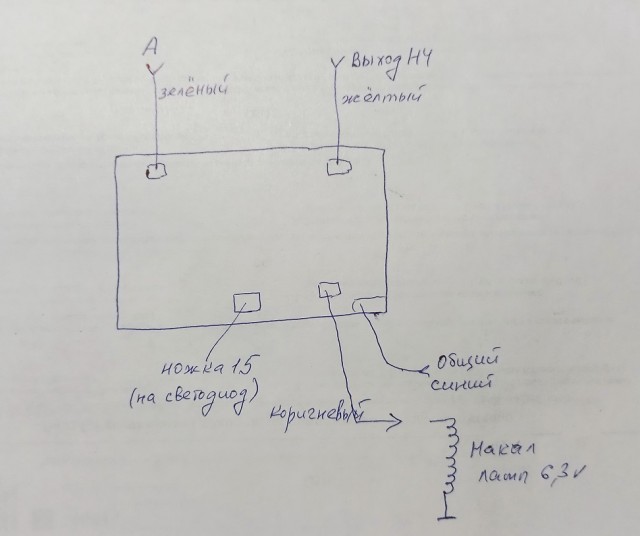 А
Выход НЧ
зелёный
жёлтый
ножка 15
(на светодиод)
общий
синий
коригневый
Накал
ламп 6,3v